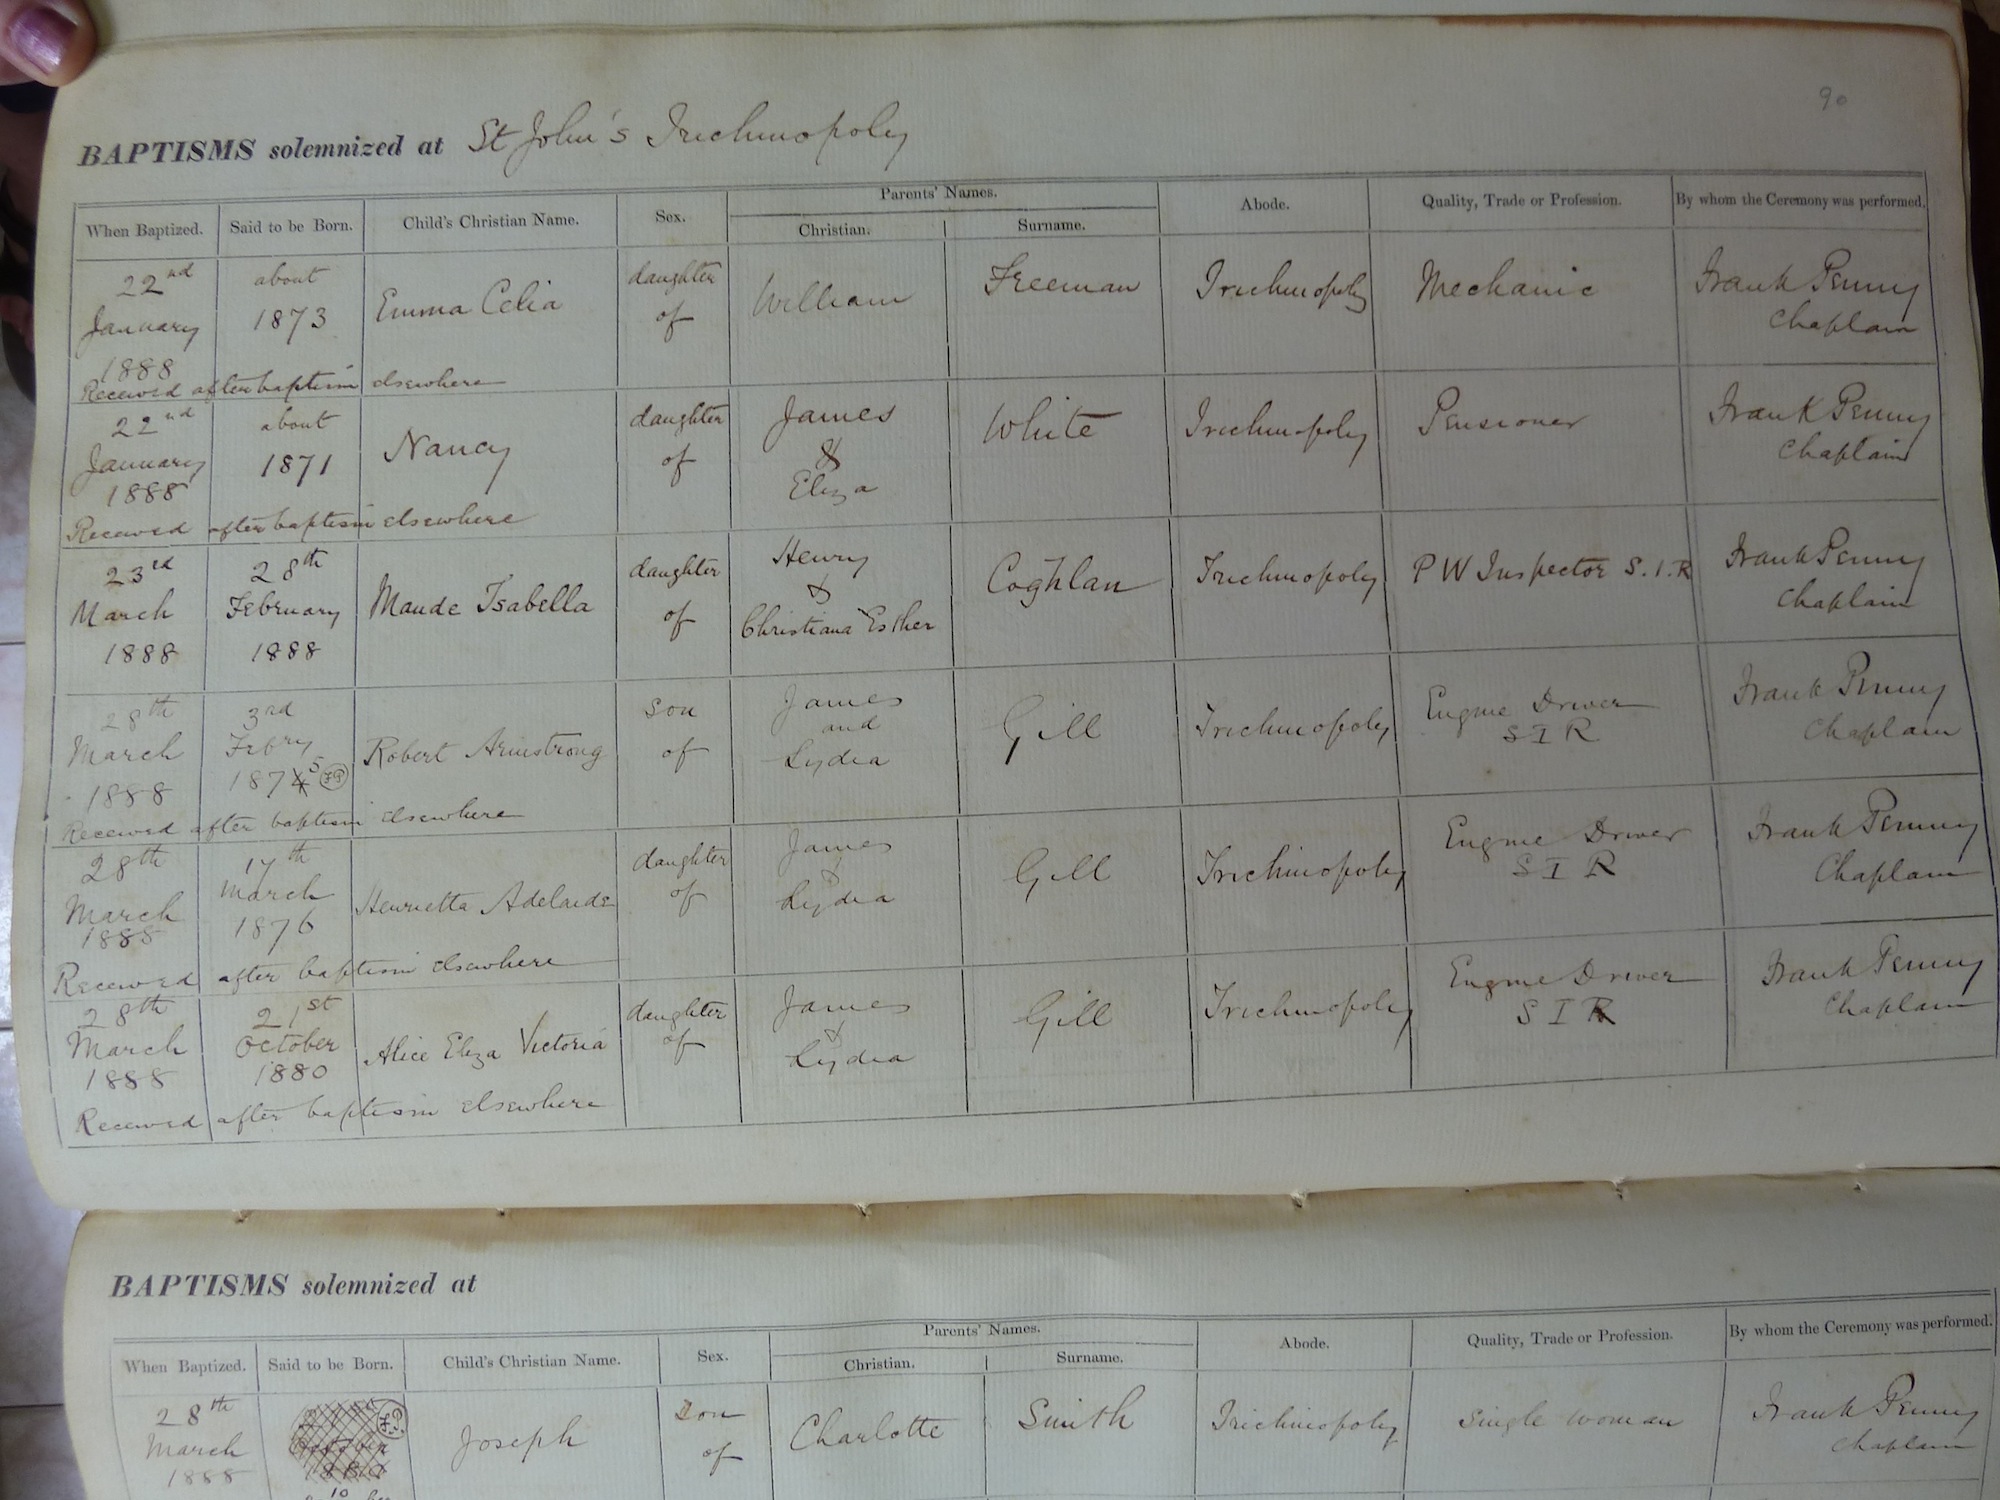 90
BAPTISMS solemnized at St John's Trichinopoly
Parents' Names.
When Baptized. Said to be Born. Child's Christian Name. Sex. Christian. Surname. Abode. Quality, Trade or Profession. By whom the Ceremony was performed.
22nd about Emma Celia daughter William Freeman Trichinopoly Mechanic Frank Penny
January 1873 of Chaplain
1888
Received after baptism elsewhere
22nd about Nancy daughter James White Trichinopoly Pensioner Frank Penny
January 1871 of & Chaplain
1888 Eliza
Received after baptism elsewhere
23rd 28th Maude Isabella daughter Henry Coghlan Trichinopoly P W Inspector S.I.R Frank Penny
March February of & Chaplain
1888 1888 Christiana Esther
28th 3rd Robert Armstrong son James Gill Trichinopoly Engine Driver Frank Penny
March Febry of and S I R Chaplain
1888 1875 FP Lydia
Received after baptism elsewhere
28th 17th Henrietta Adelaide daughter James Gill Trichinopoly Engine Driver Frank Penny
March March of & S I R Chaplain
1888 1876 Lydia
Received after baptism elsewhere
28th 21st Alice Eliza Victoria daughter James Gill Trichinopoly Engine Driver Frank Penny
March October of & S I R Chaplain
1888 1880 Lydia
Received after baptism elsewhere
BAPTISMS solemnized at
Parents' Names.
When Baptized. Said to be Born. Child's Christian Name. Sex. Christian. Surname. Abode. Quality, Trade or Profession. By whom the Ceremony was performed.
28th FP Joseph Son Charlotte Smith Trichinopoly Single woman Frank Penny
March October of Chaplain
1888